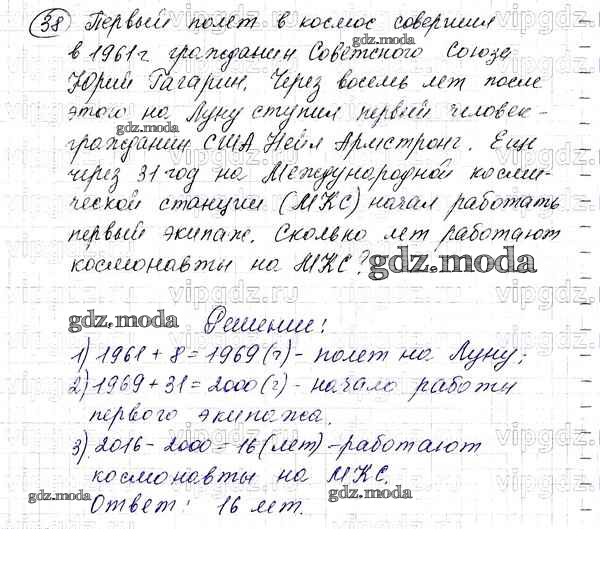 38 Первый полет в космос совершил
в 1961 г гражданин Советского Союза
Юрий Гагарин. Через восемь лет после
этого на Луну ступил первый человек -
гражданин США Нейл Армстронг. Еще
через 31 год на Международной косми-
ческой станции (МКС) начал работать
первый экипаж. Сколько лет работают
космонавты на МКС?
Решение:
1) 1961 + 8 = 1969 (г) - полет на Луну;
2) 1969 + 31 = 2000 (г) - начало работы
первого экипажа.
3) 2016 - 2000 = 16 (лет) - работают
космонавты на МКС.
Ответ: 16 лет.
gdz.moda
gdz.moda
gdz.moda
gdz.moda
gdz.moda
gdz.moda
gdz.moda
vipgdz.ru